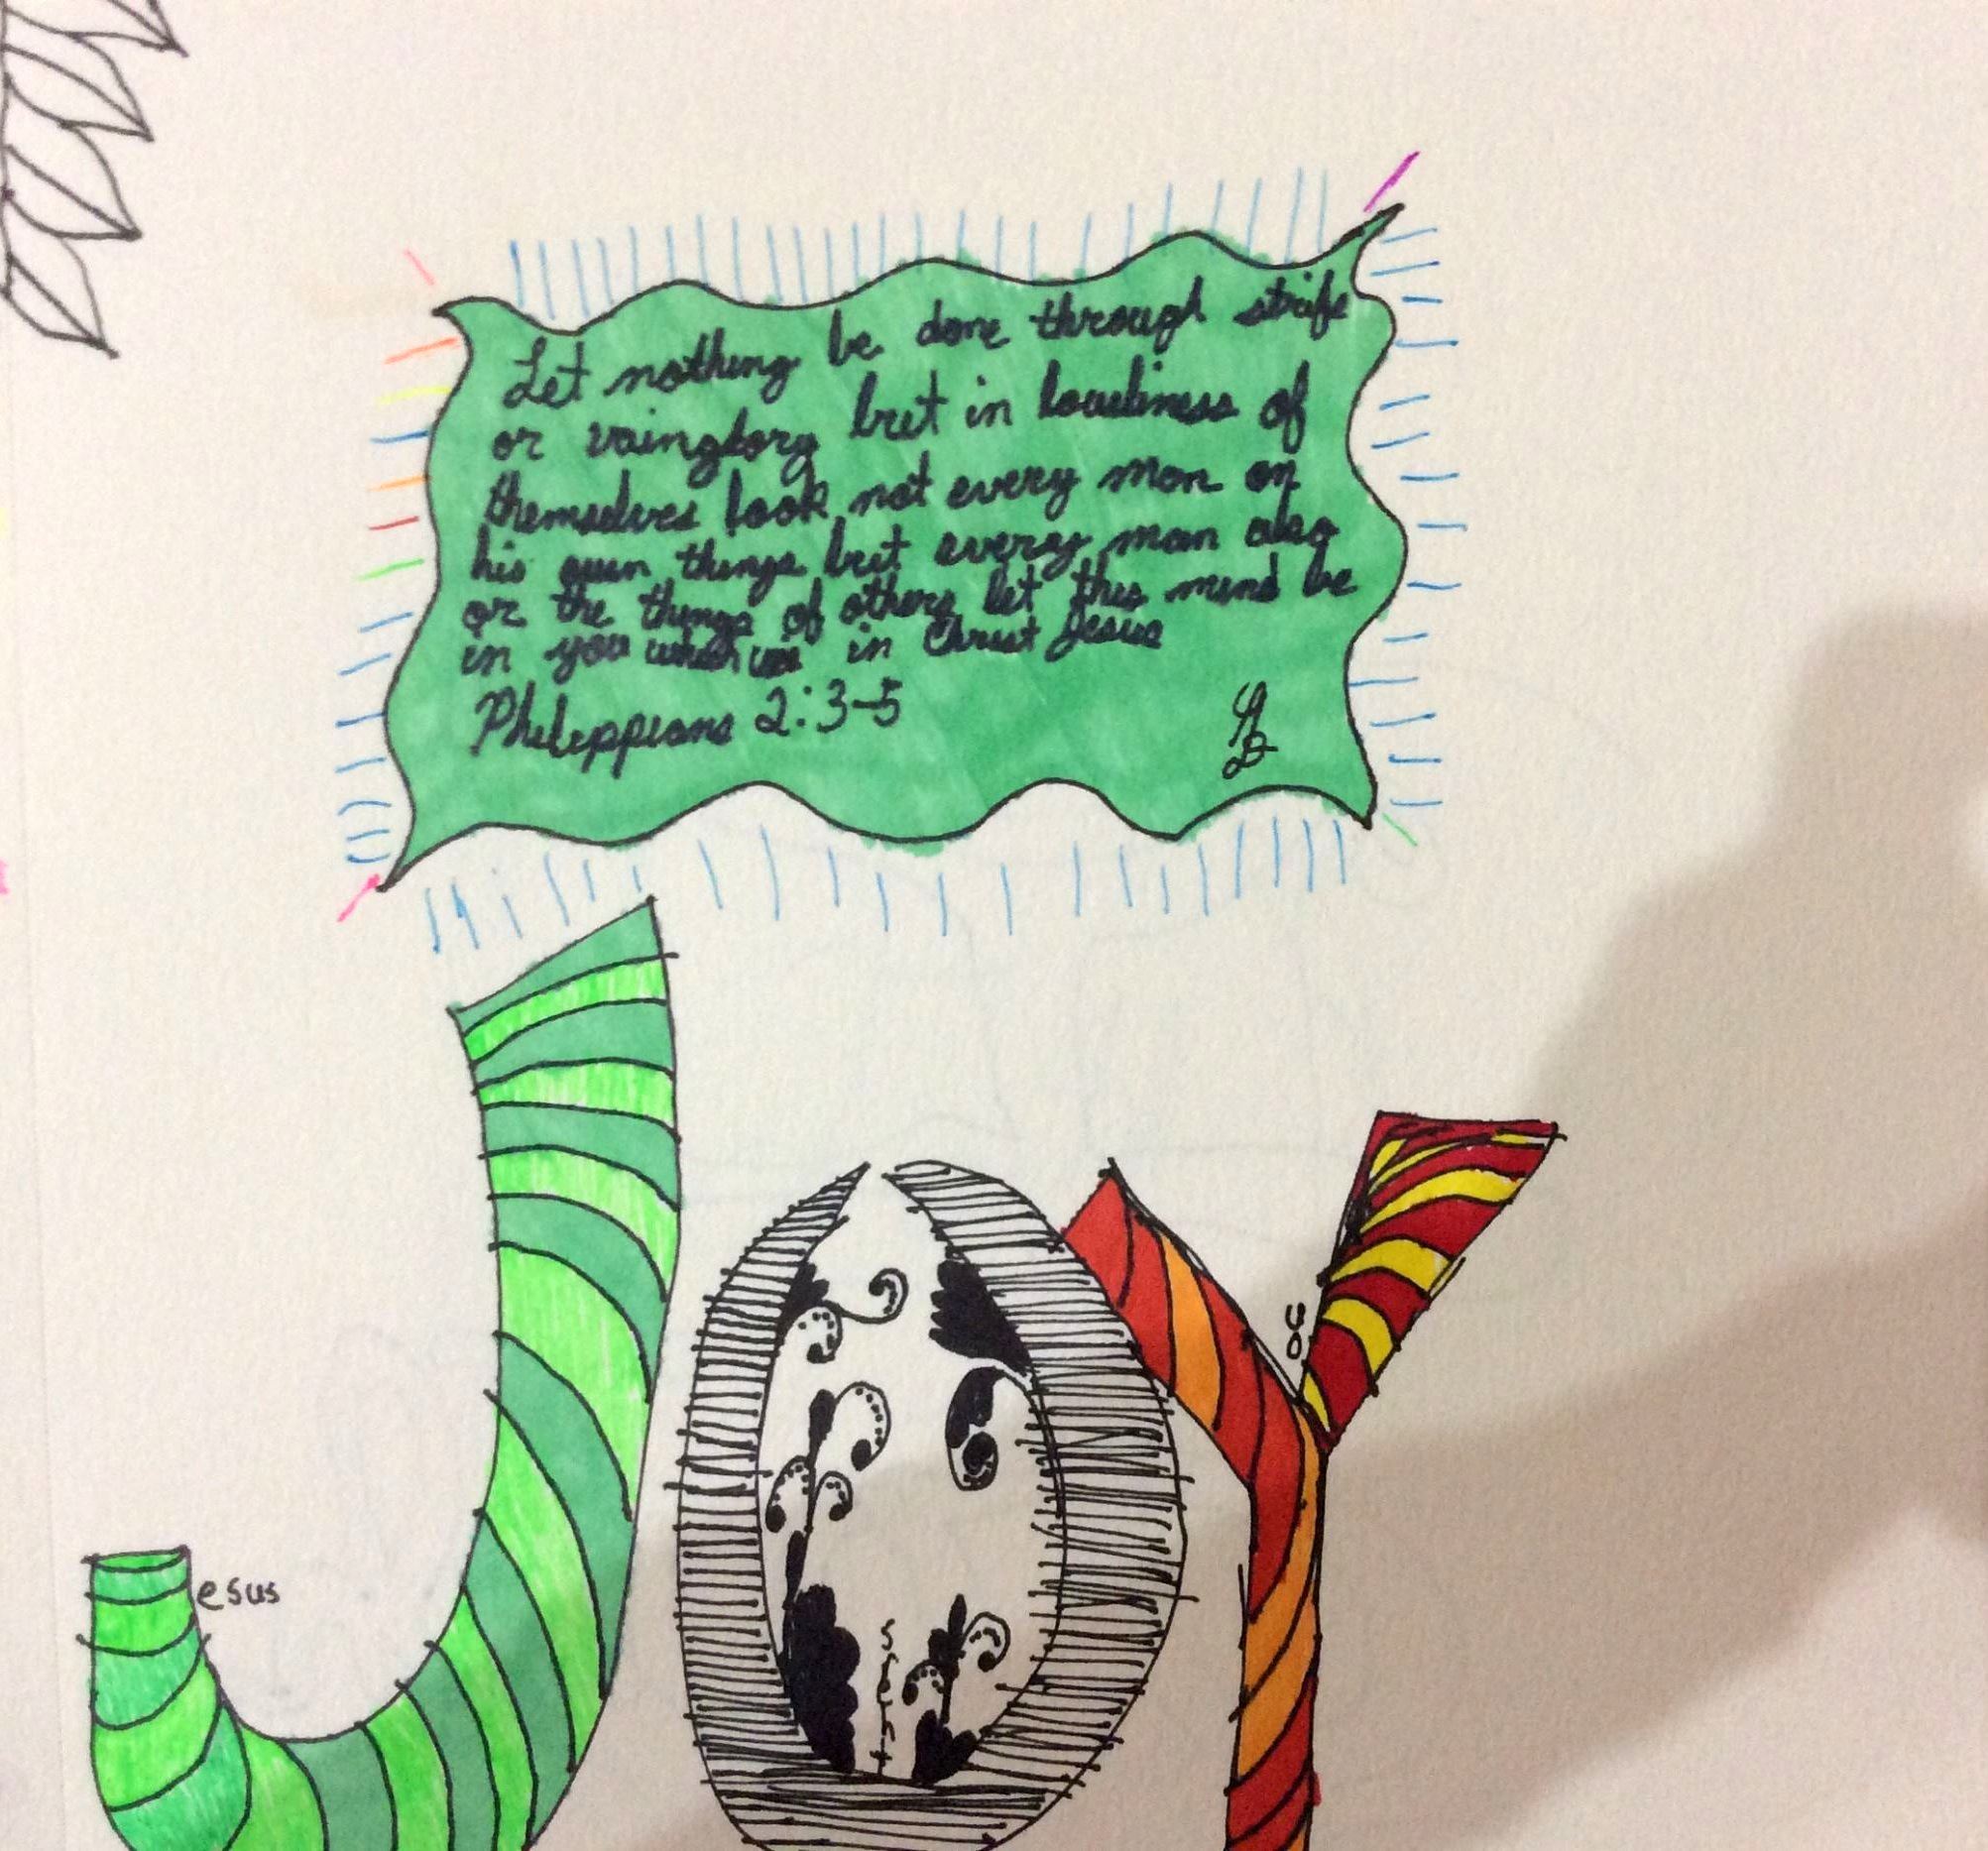 Let nothing be done through strife
or vainglory but in lowliness of
themselves look not every man on
his own things but every man also
or the things of others let this mind be
in you which was in Christ Jesus
Philippians 2:3-5
JOY
esus
thers
ou